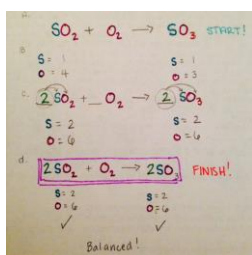 a.
SO₂ + O₂ → SO₃ START!
B
S = 1 S = 1
O = 4 O = 3
C. 2 SO₂ + _ O₂ → 2 SO₃
S = 2 S = 2
O = 6 O = 6
d.
2SO₂ + O₂ → 2SO₃ FINISH!
S = 2 S = 2
O = 6 O = 6
✓ ✓
Balanced!